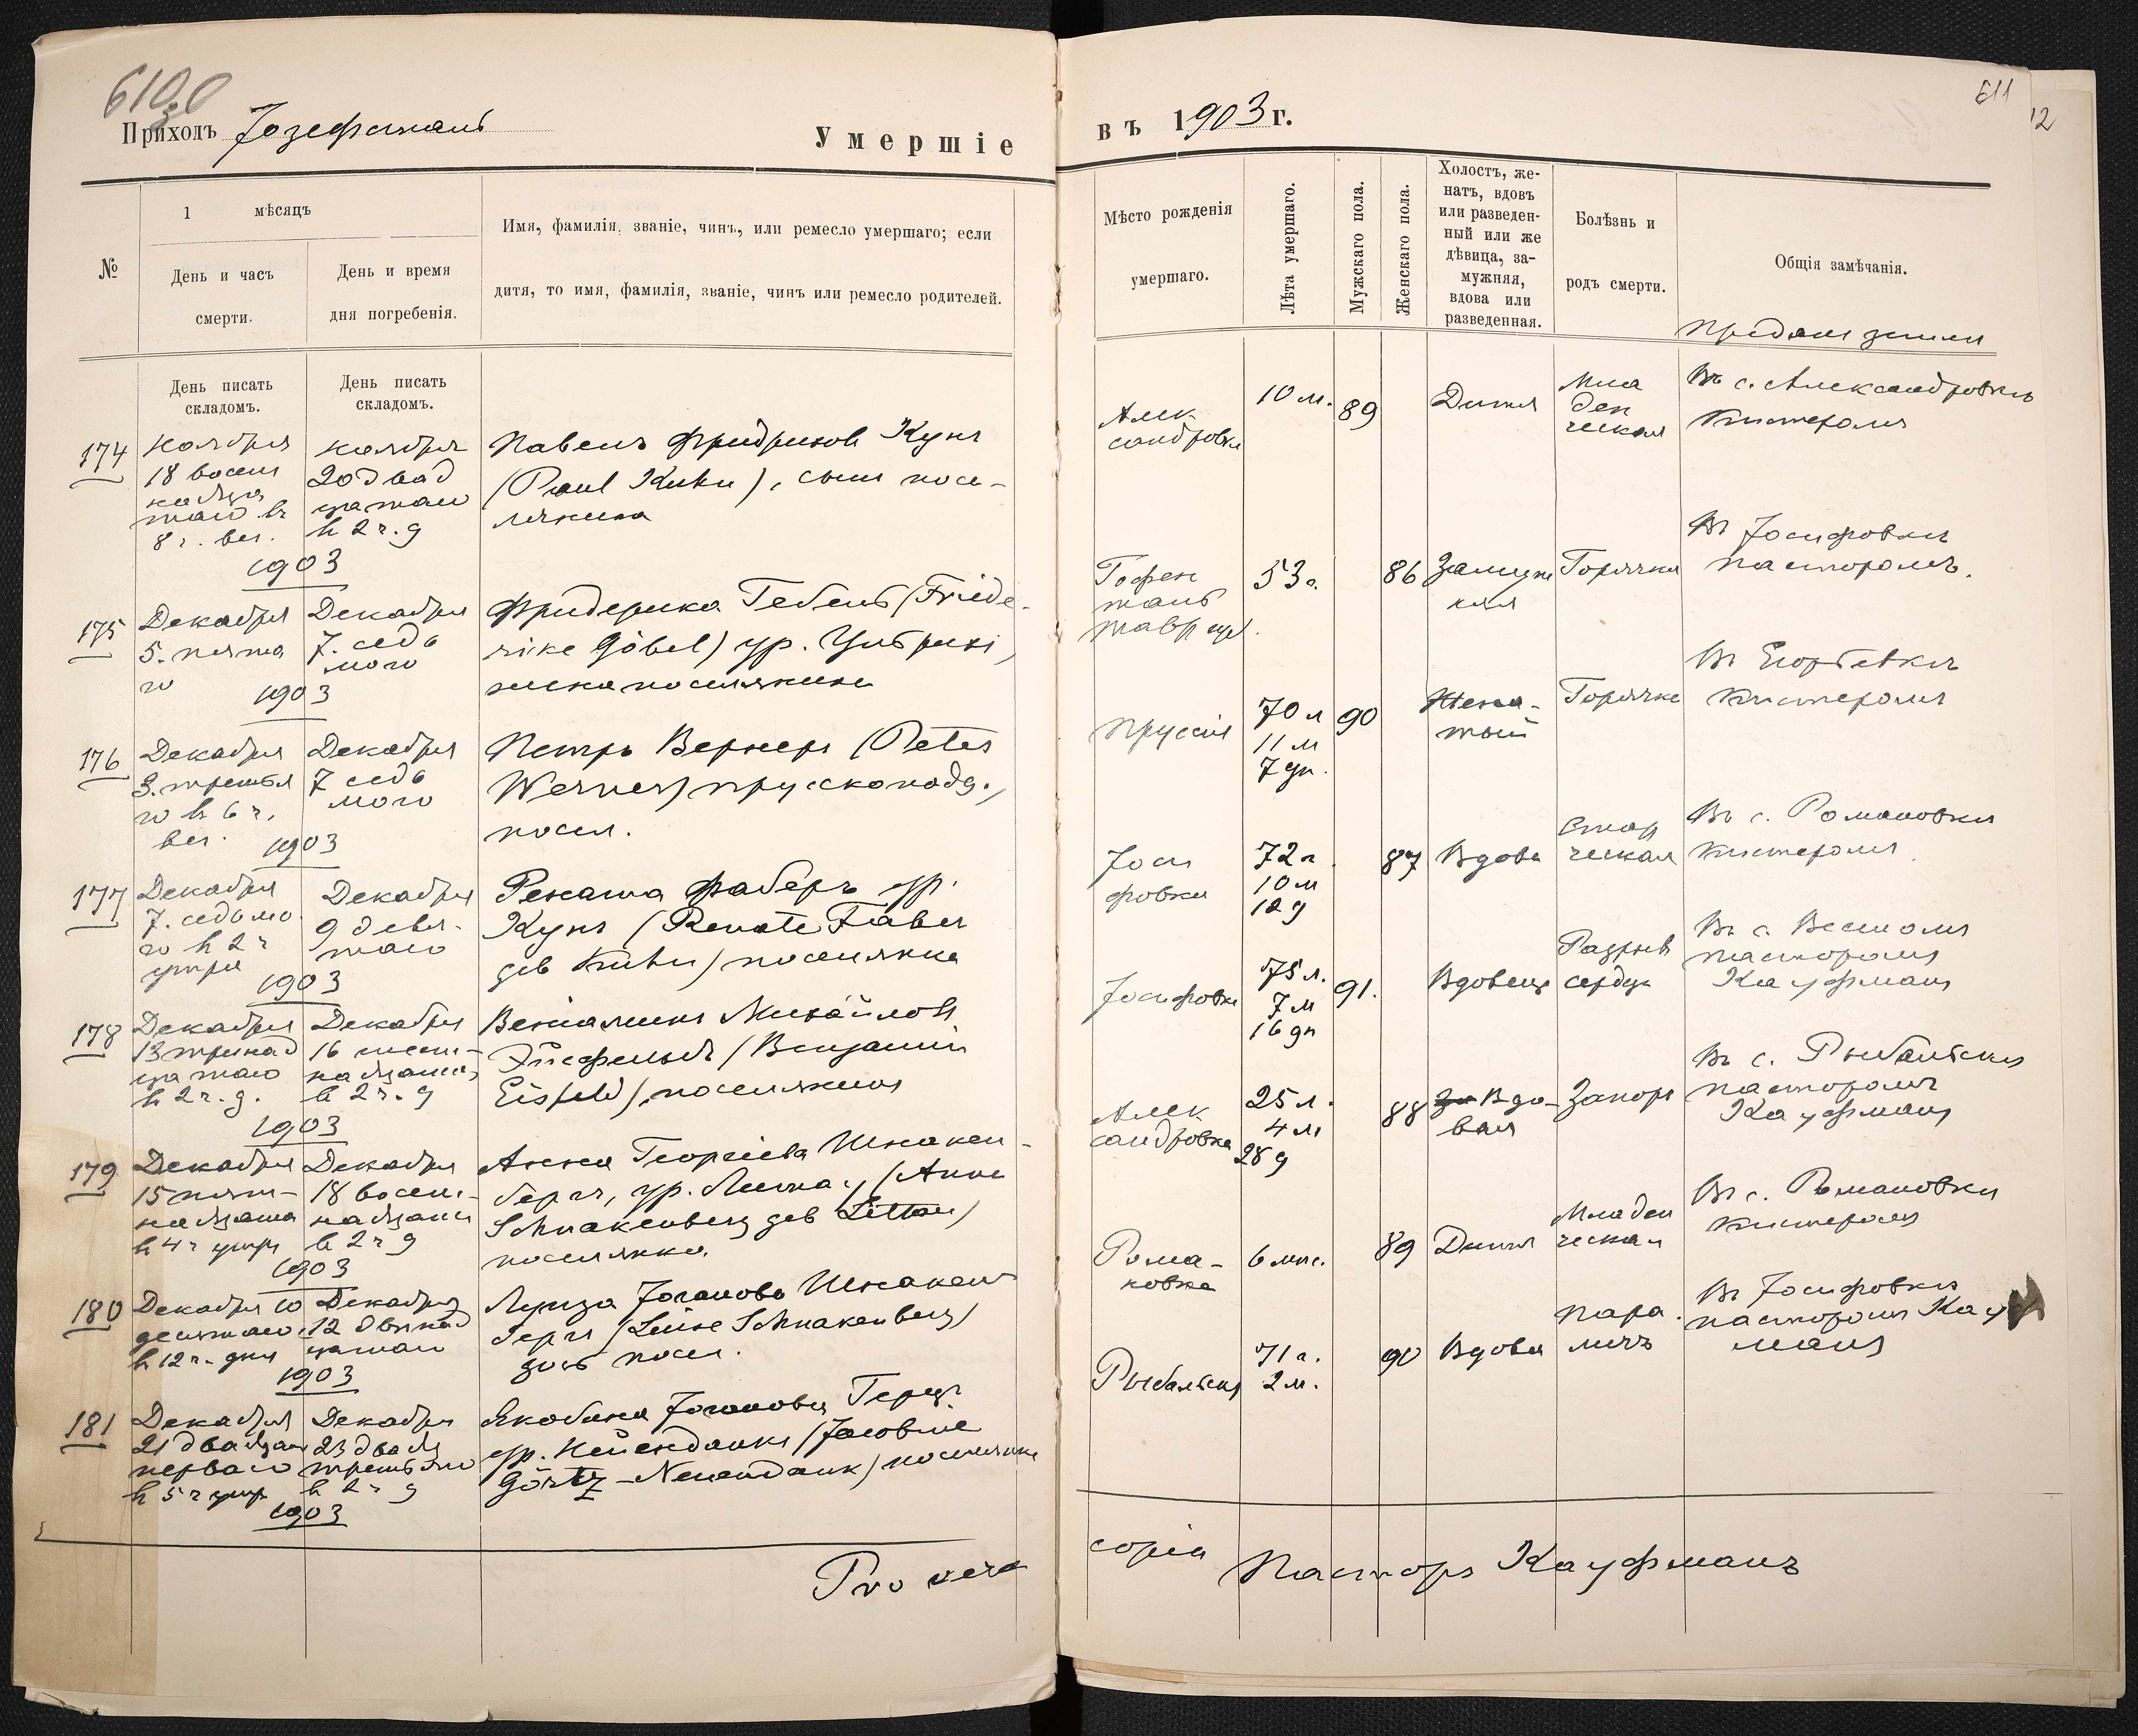 610
611
12
Приходъ Іозефсталь
Умершіе
въ 1903 г.
№
1 мѣсяцъ
День и часъ
смерти.
День и время
дня погребенія.
Имя, фамилія, званіе, чинъ, или ремесло умершаго; если
дитя, то имя, фамилія, званіе, чинъ или ремесло родителей.
Мѣсто рожденія
умершаго.
Лѣта умершаго.
Мужскаго пола.
Женскаго пола.
Холостъ, же-
натъ, вдовъ
или разведен-
ный или же
дѣвица, за-
мужняя,
вдова или
разведенная.
Болѣзнь и
родъ смерти.
Общія замѣчанія.
Преданъ земли
День писать
складомъ.
День писать
складомъ.
174
Ноября
18 восем
надца
таго въ
8 ч. веч.
1903
Ноября
20 двад
цатаго
в 2 ч. д
Павелъ Фридриховъ Кунъ
(Paul Kuhn), сынъ посе-
лянина
Алек
сандровка
10 м.
89
Дитя
Мла
ден
ческая
Въ с. Александровкѣ
Кистеромъ
175
Декабря
5. пята
го
1903
Декабря
7. седь
мого
Фридерика Гебель (Friede-
rike Göbel) ур. Ульрихъ,
жена поселянина
53 г.
86
Замуж
няя
Горячка
Въ Іосифовкѣ
пасторомъ.
176
Декабря
3. третья
го в 6 ч.
веч.
1903
Декабря
7 седь
мого
Петръ Вернеръ (Peter
Werner) прусскоподд.,
посел.
Пруссія
70 л
11 м
7 дн.
90
Жена-
тый
Горячка
Кистеромъ
177
Декабря
7. седьмо
го в 2 ч
утра
1903
Декабря
9 девя-
таго
Рената Фаберъ ур.
Кунъ (Renate Faber
geb Kuhn) поселянка
Іоси
фовка
72 г.
10 м
12 д
87
Вдова
Стар
ческая
Въ с. Романовкѣ
Кистеромъ
178
Декабря
13 тринад
цатаго
в 2 ч. д.
1903
Декабря
16 шест-
надцатаго
в 2 ч. д
Веніаминъ Михайловъ
Эйсфельдъ (Benjamin
Eisfeld), поселянинъ
Іосифовка
75 л.
7 м
16 дн
91.
Вдовецъ
Разрыв
сердца
пасторомъ
Кауфманъ
179
Декабря
15 пят-
надцата
в 4 ч утра
1903
Декабря
18 восем-
надцати
в 2 ч д
Анна Георгіева Шнакен-
бергъ, ур. Литта, (Anna
Schnakenberg geb Littau)
поселянка.
Алек
сандровка
25 л.
4 м
28 д
88
Вдо-
вая
Запоръ
Въ с. Рыбальскѣ
пасторомъ
Кауфманъ
180
Декабря 10
десятаго
в 12 ч. дня
1903
Декабря
12 двѣнад
цатаго
Луиза Іоганова Шнакен
бергъ (Luise Schnakenberg)
дочь посел.
Рома-
новка
6 мѣс.
89
Дитя
Младен
ческая
Въ с. Романовкѣ
Кистеромъ
181
Декабря
21 двадцать
перваго
в 5 ч утр
1903
Декабря
23 двадц
третьяго
в 2 ч д
Якобина Іоганова Герцъ
ур. Нейенданкъ (Jacobine
Görtz - Neuendank) поселянка
Рыбальскъ
71 г.
2 м.
90
Вдова
Пара
личъ
Въ Іосифовкѣ
пасторомъ Кауф
манъ
Pro vera
copia
Пасторъ Кауфманъ